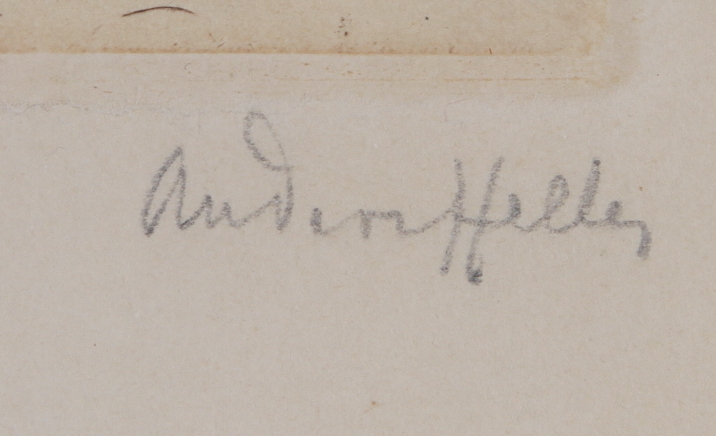 Anders Heller